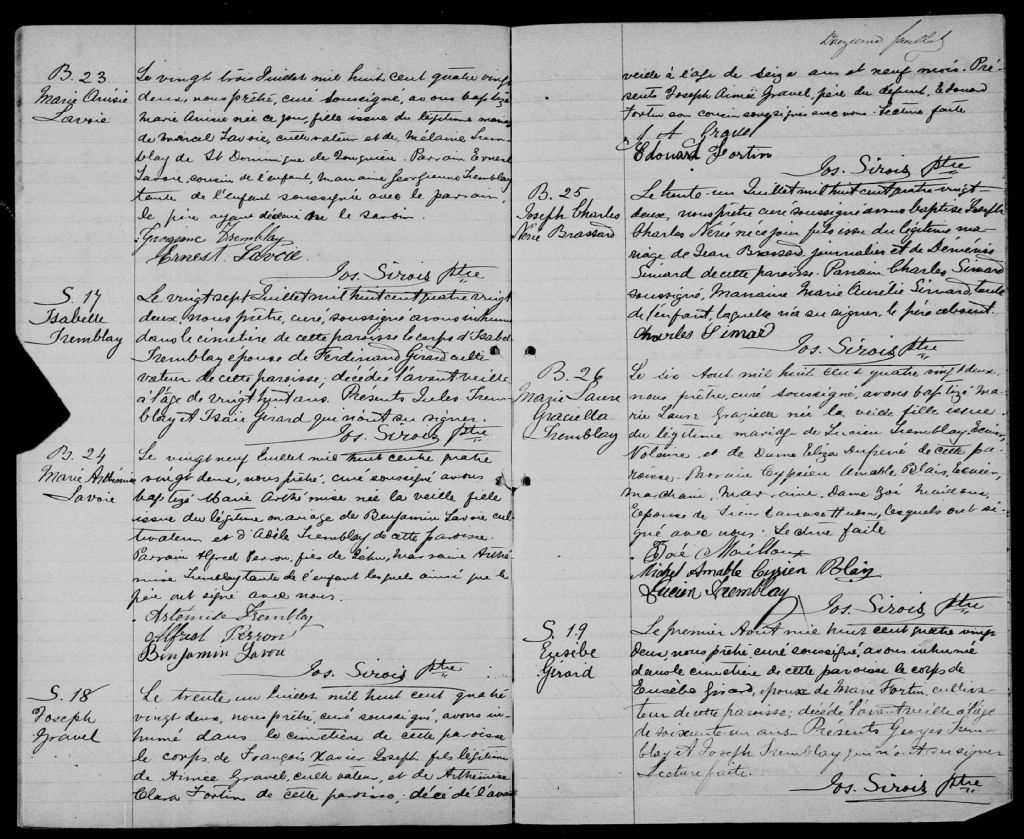 B. 23
Marie Anisie
Lavoie
Le vingt trois Juillet mil huit cent quatre vingt
deux, nous prêtre, curé soussigné, avons baptizé
Marie Anisie née ce jour, fille issue du légitime mariage
de Marcel Lavoie, cultivateur et de Mélanie Trem
blay de St Dominique de Jonquière. Parrain Ernest
Lavoie, cousin de l'enfant, Marraine Georgianne Tremblay
tante de l'enfant soussignée avec le parrain,
le père ayant déclaré ne le savoir.
Georgianne Tremblay
Ernest Lavoie
Jos. Sirois Ptre
S. 17
Isabelle
Tremblay
Le vingt sept Juillet mil huit cent quatre vingt
deux, nous prêtre, curé soussigné avons inhumé
dans le cimetière de cette paroisse le corps d'Isabel
Tremblay epouse de Ferdinand Girard culti
vateur de cette paroisse; décédée l'avant veille
à l'age de vingt huit ans. Présents Jules Trem
blay et Isaïe Girard qui n'ont su signer.
Jos. Sirois Ptre
B. 24
Marie Arthémise
Lavoie
Le vingt neuf Juillet mil huit cent quatre
vingt deux, nous prêtre, curé soussigné avons
baptizé Marie Arthémise née la veille fille
issue du légitime mariage de Benjamin Lavoie cul
tivateur et d'Adèle Tremblay de cette paroisse.
Parrain Alfred Perron, fils de Marraine Arthé
mise Tremblay tante de l'enfant lesquels ainsi que le
père ont signé avec nous.
Artémise Tremblay
Alfred Perron
Benjamin Lavoie
Jos. Sirois Ptre
S. 18
Joseph
Gravel
Le trente un Juillet mil huit cent quatre
vingt deux, nous prêtre, curé soussigné, avons in
humé dans le cimetière de cette paroisse
le corps de François Xavier Joseph fils légitime
de Aimée Gravel, cultivateur, et de Arthémise
Clara Fortin de cette paroisse; décédé l'avant
feuillet
veille à l'age de seize ans et neuf mois. Pré
sents Joseph Aimée Gravel, père du défunt, Edouard
Fortin son cousin soussignés avec nous. Lecture faite
J A Gravel
Edouard Fortin
Jos. Sirois Ptre
B. 25
Joseph Charles
Nérée Brassard
Le trente-un Juillet mil huit cent quatre vingt-
deux, nous prêtre curé soussigné avons baptisé Joseph
Charles Nérée né ce jour fils issu du légitime ma
riage de Jean Brassard, journalier et de Démérise
Simard de cette paroisse. Parrain, Charles Simard
soussigné, Marraine Marie Aurélie Simard, tante
de l'enfant, laquelle n'a su signer, le père absent.
Charles Simard
Jos. Sirois Ptre
B. 26
Marie Laure
Graciella
Tremblay
Le six Aout mil huit cent quatre vingt deux
nous prêtre, curé soussigné, avons baptizé Ma
rie Laure Graziella née la veille fille issue
du légitime mariage de Lucien Tremblay, Ecuier,
Notaire et de Dame Eliza Dufresne de cette pa
roisse. Parrain Cyprien Amable Blais, Ecuier,
marchand, Marraine, Dame Zoé Mailloux,
Epouse de lesquels ont si
gné avec nous. Lecture faite
Zoé Mailloux
Michel Amable Cyprien Blais
Lucien Tremblay
Jos. Sirois Ptre
S. 19
Eusèbe
Girard
Le premier Aout mil huit cent quatre vingt
deux, nous prêtre, curé soussigné, avons inhumé
dans le cimetière de cette paroisse le corps de
Eusèbe Girard, époux de Marie Fortin, cultiva
teur de cette paroisse; décédé l'avant veille à l'age
de soixante un ans. Présents Georges Trem
blay et Joseph Tremblay qui n'ont su signer
Lecture faite.
Jos. Sirois Ptre